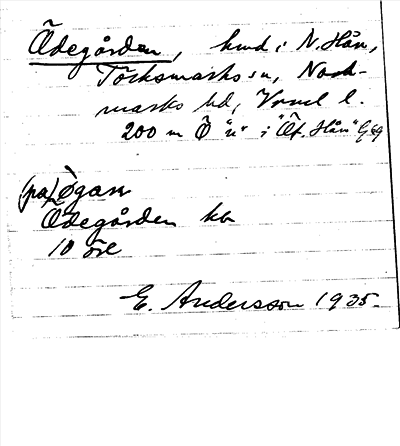 Ödegården, hmd i N. Hån,
Töcksmarks sn, Nord-
marks hd, Vrml l.
200 m Ö "n" i "Öf. Hån" G69
(pa) Øgaṛn
Ödegården ka
10 öre
E. Andersson 1935.